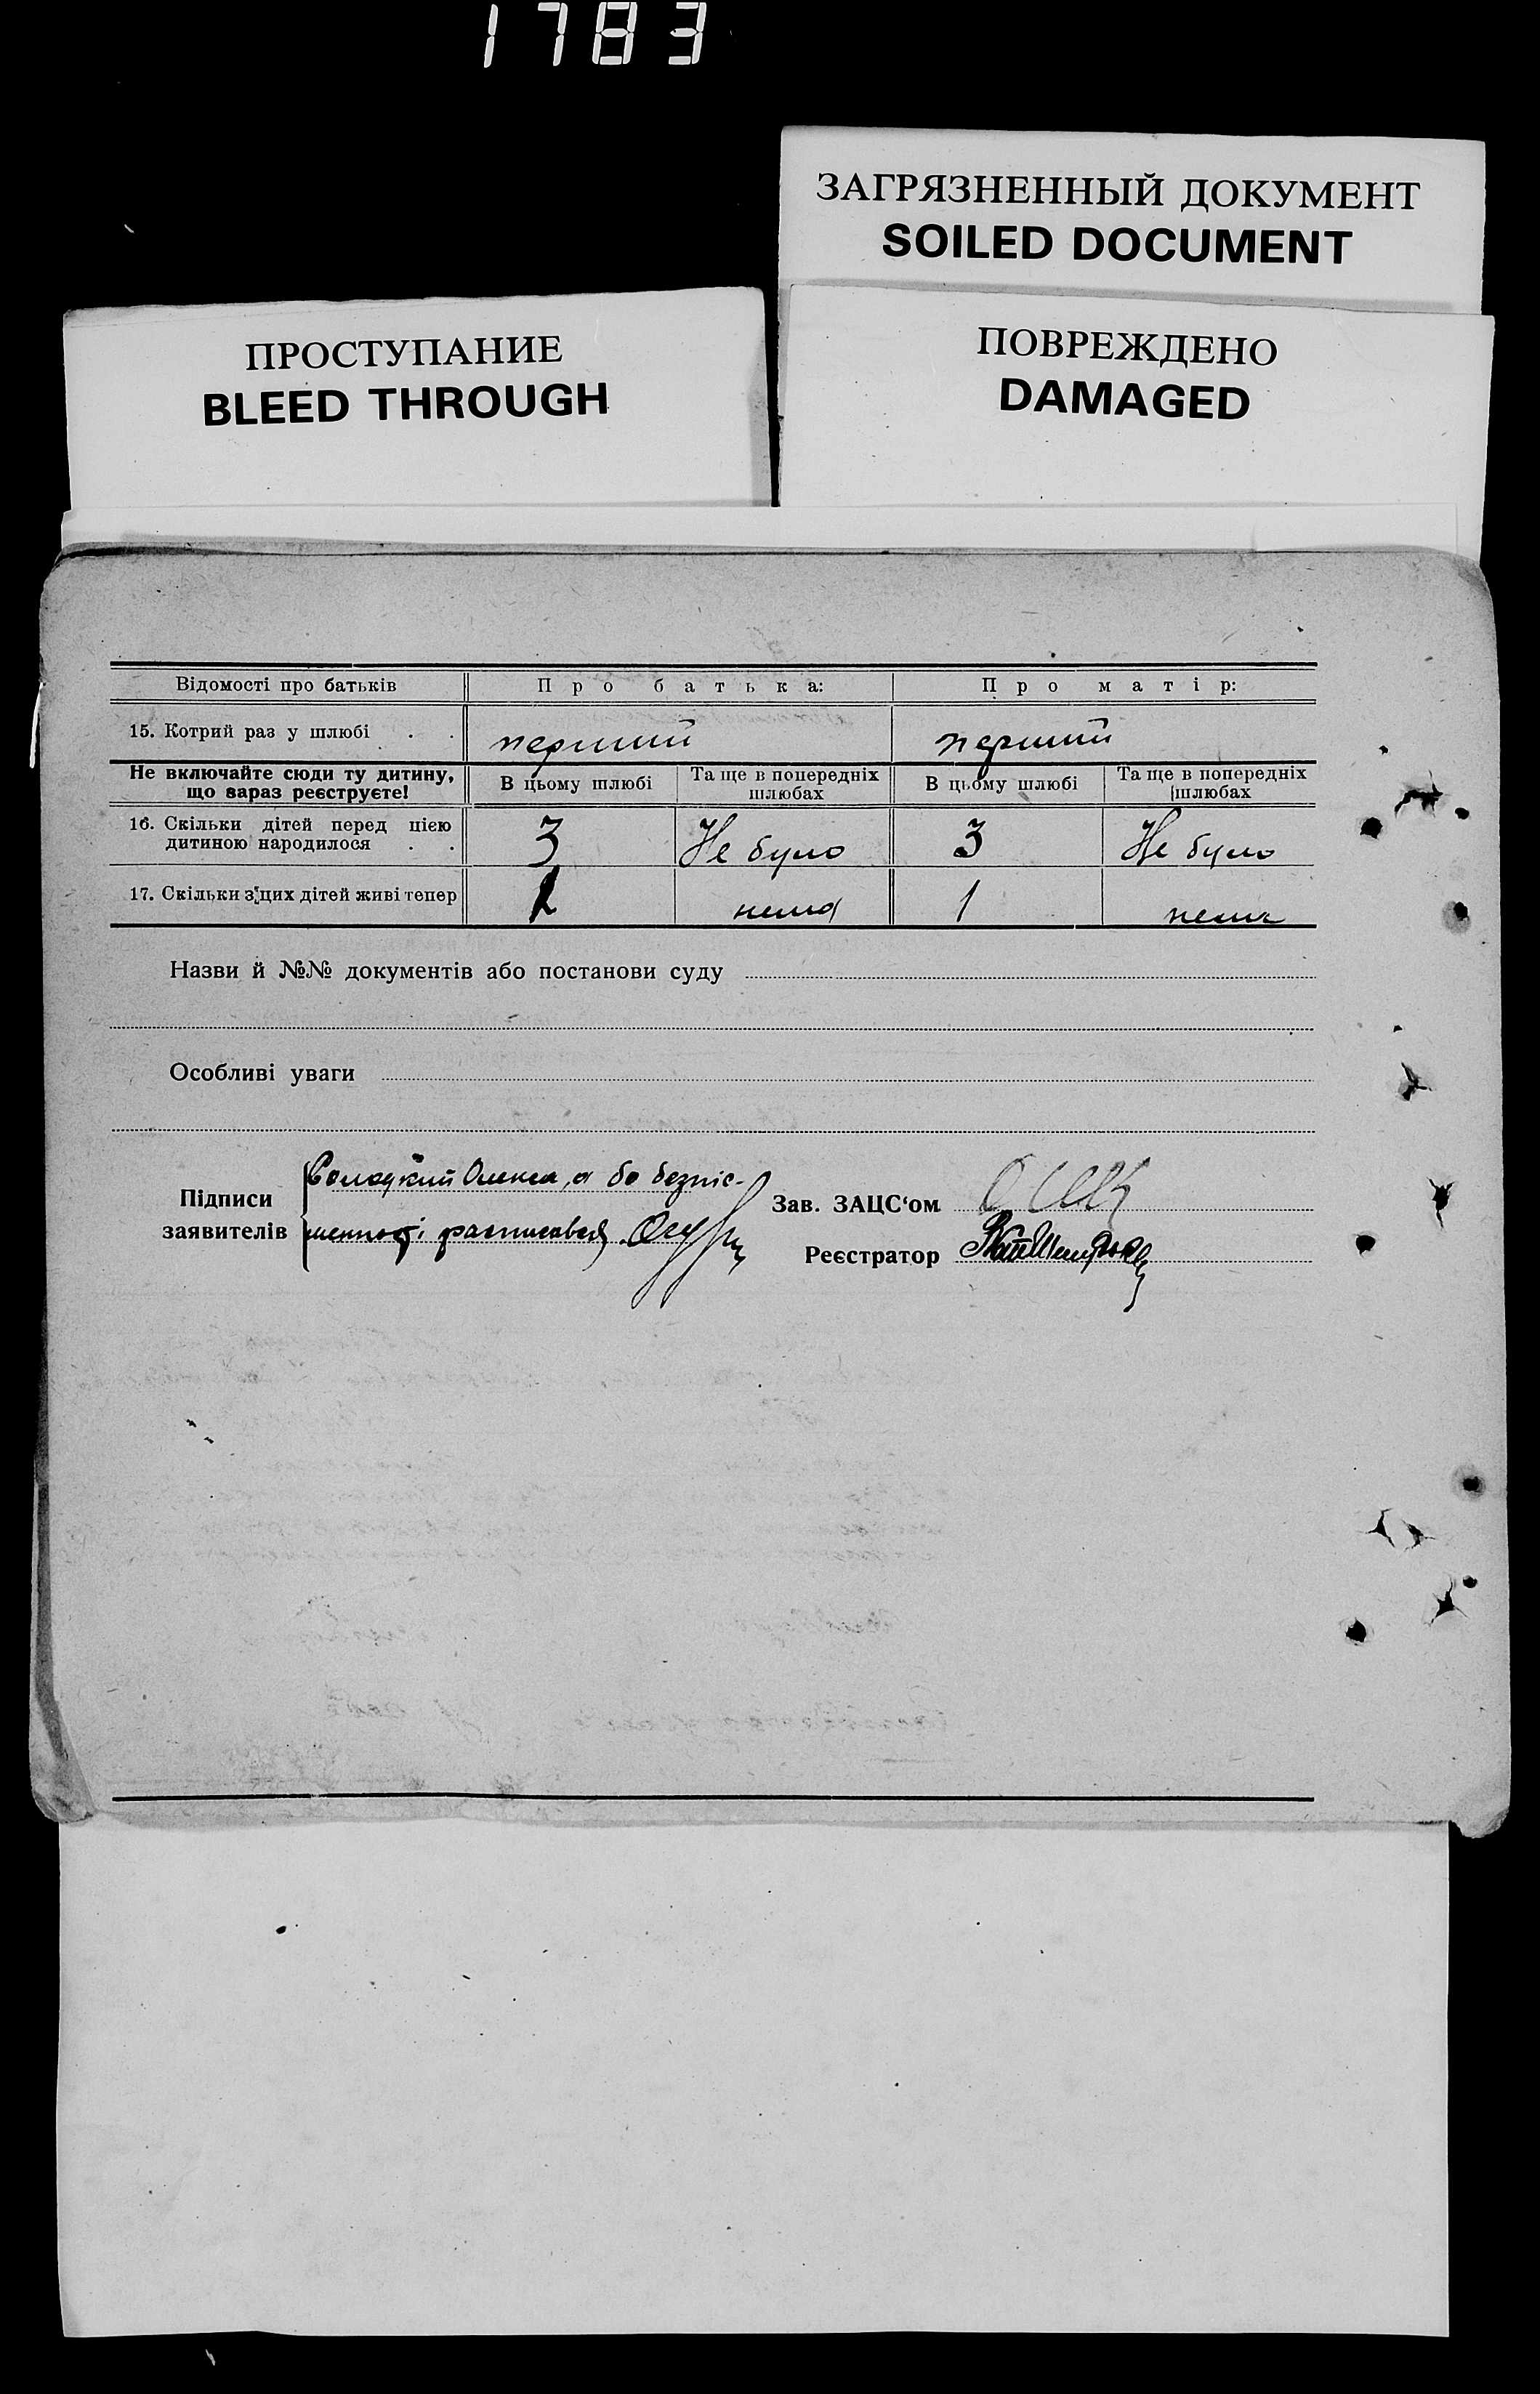 1783
ЗАГРЯЗНЕННЫЙ ДОКУМЕНТ
SOILED DOCUMENT
ПРОСТУПАНИЕ
BLEED THROUGH
ПОВРЕЖДЕНО
DAMAGED
Відомості про батьків Про батька: Про матір:
15. Котрий раз у шлюбі . . перший перший
Не включайте сюди ту дитину, що вараз реєструєте! В цьому шлюбі Та ще в попередніх шлюбах В цьому шлюбі Та ще в попередніх шлюбах
16. Скільки дітей перед цією
дитиною народилося . . 3 Не було 3 Не було
17. Скільки з цих дітей живі тепер нема 1 нема
Назви й №№ документів або постанови суду
Особливі уваги
Підписи
заявителів
Олекса, а бо безпис-
расписавсь
Зав. ЗАЦС‘ом
Реєстратор